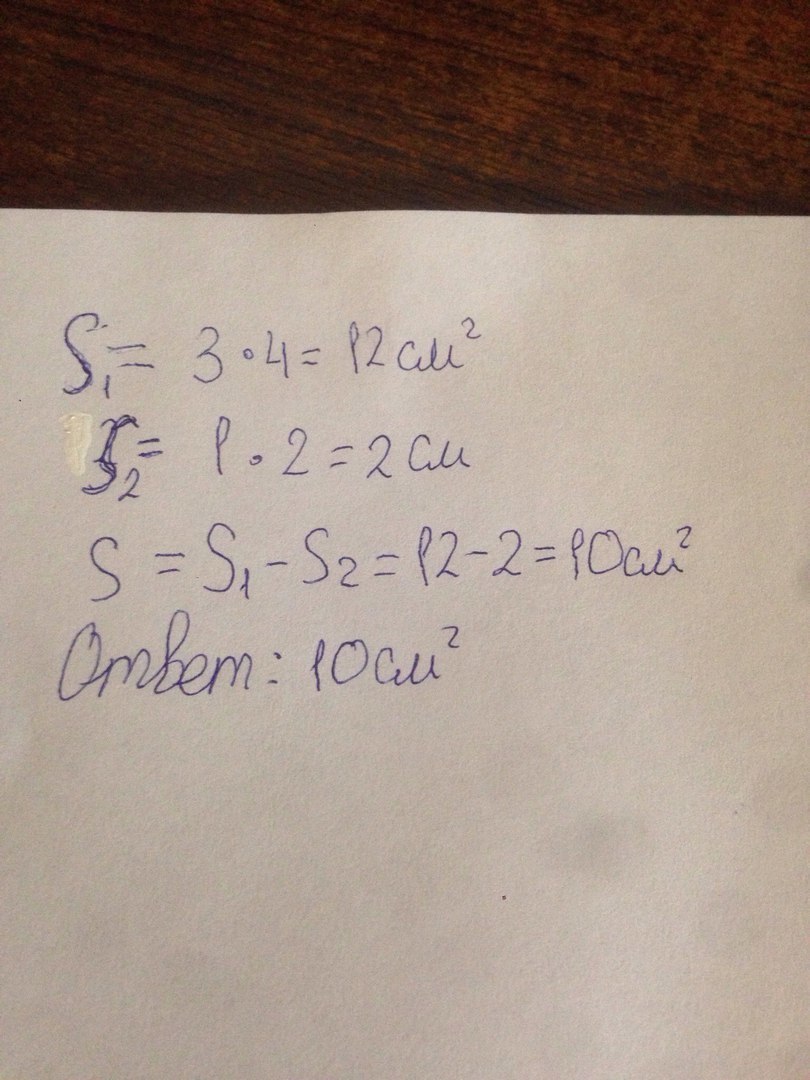 S₁ = 3 · 4 = 12 см²
S₂ = 1 · 2 = 2 см
S = S₁ - S₂ = 12 - 2 = 10 см²
Ответ: 10 см²